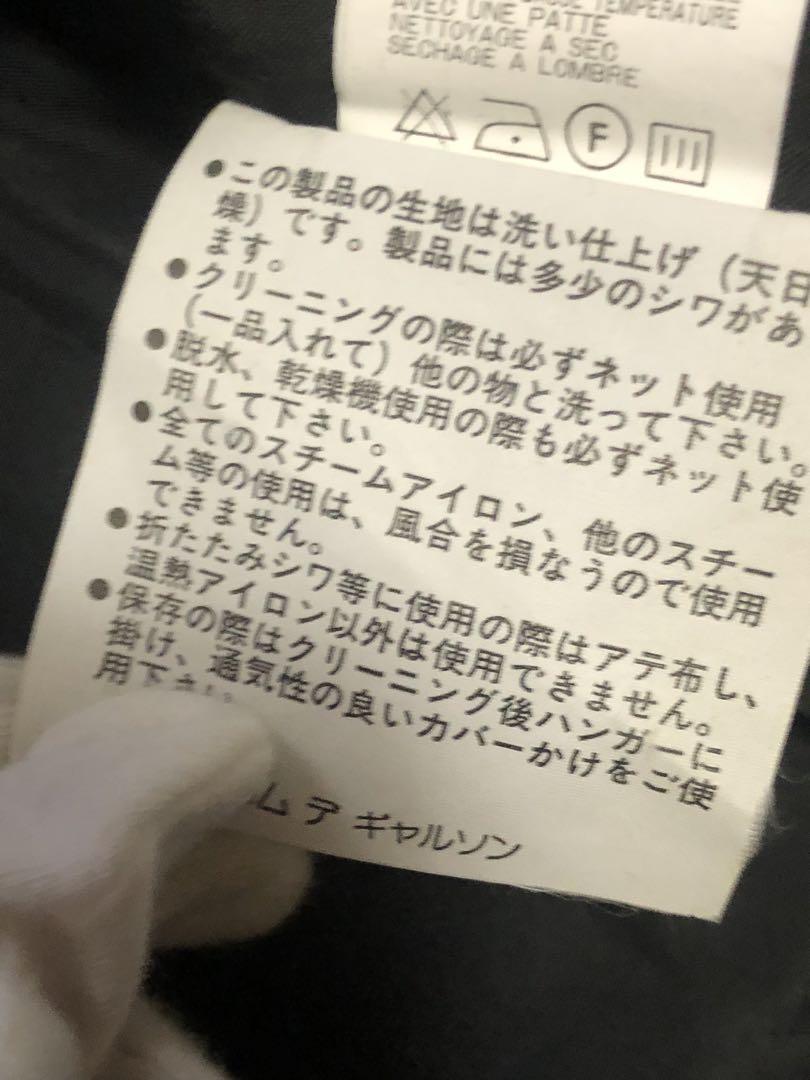 TEMPERATURE
AVEC UNE PATTE
NETTOYAGE A SEC
SECHAGE A LOMBRE
F
●この製品の生地は洗い仕上げ（天日
燥）です。製品には多少のシワがあ
ます。
●クリーニングの際は必ずネット使用
（一品入れて）他の物と洗って下さい。
●脱水、乾燥機使用の際も必ずネット使
用して下さい。
●全てのスチームアイロン、他のスチー
ム等の使用は、風合を損なうので使用
できません。
●折たたみシワ等に使用の際はアテ布し、
温熱アイロン以外は使用できません。
●保存の際はクリーニング後ハンガーに
掛け、通気性の良いカバーかけをご使
用下さい
ム デ ギャルソン